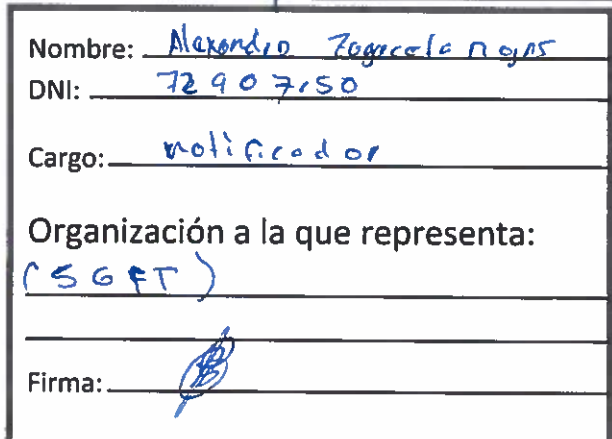 Nombre: Alexandro
DNI: 72907150
Cargo: notificador
Organización a la que representa:
(SGFT)
Firma: